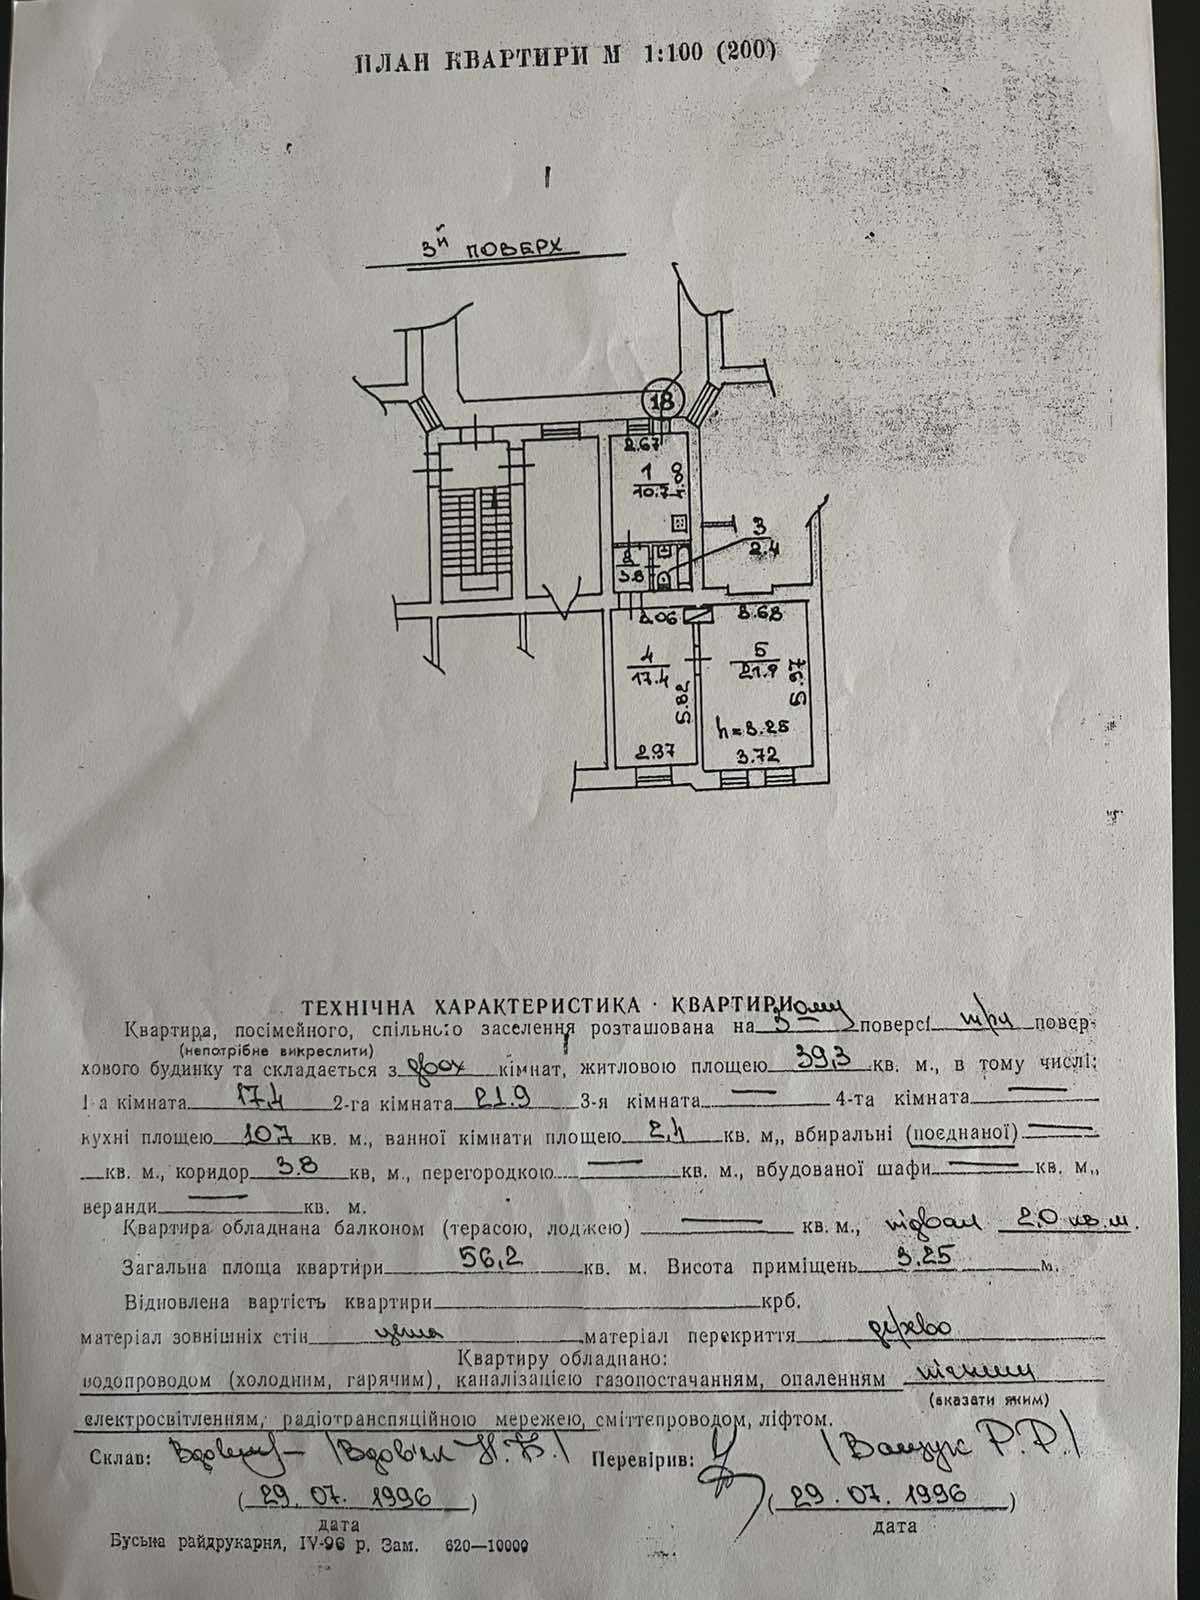 ПЛАН КВАРТИРИ М 1:100 (200)
3й ПОВЕРХ
18
2.67
1
10.7
2
3.8
3
2.4
3.06
3.68
4
17.4
5
21.9
5.82
5.97
h=3.25
2.97
3.72
ТЕХНІЧНА ХАРАКТЕРИСТИКА КВАРТИРИ
Квартира, посімейного, спільного заселення розташована на 3ому поверсі три повер-
(непотрібне викреслити)
хового будинку та складається з двох кімнат, житловою площею 39,3 кв. м., в тому числі:
1-а кімната 17,4 2-га кімната 21.9 3-я кімната — 4-та кімната —
кухні площею 10,7 кв. м., ванної кімнати площею 2,4 кв. м,, вбиральні (поєднаної) —
кв. м., коридор 3.8 кв, м., перегородкою — кв. м., вбудованої шафи — кв. м,,
веранди — кв. м.
Квартира обладнана балконом (терасою, лоджею) — кв. м., підвал 2,0 кв.м.
Загальна площа квартири 56,2 кв. м. Висота приміщень 3,25 м.
Відновлена вартість квартири крб.
матеріал зовнішніх стін цегла матеріал перекриття дерево
Квартиру обладнано:
водопроводом (холодним, гарячим), каналізацією газопостачанням, опаленням пічним
(вказати яким)
електросвітленням, радіотранспяційною мережею, сміттєпроводом, ліфтом.
Склав: /Вдов'як Н.Б./ Перевірив: /Ващук Р.Р./
(29.07.1996) (29.07.1996)
дата дата
Буська райдрукарня, IV-96 р. Зам. 620—10000